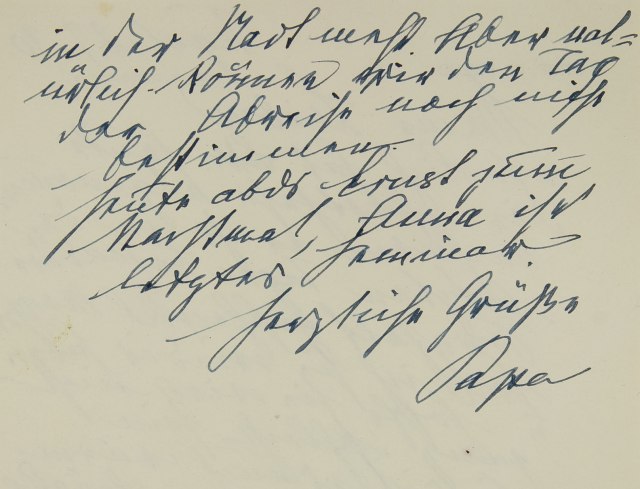 in der Nacht mehr. Aber nat=
ürlich können wir den Tag
der Abreise noch nicht
bestimmen.
Heute abds Ernst zum
Nachtmal, Anna ihr
letztes Seminar.
Herzliche Grüße
Papa